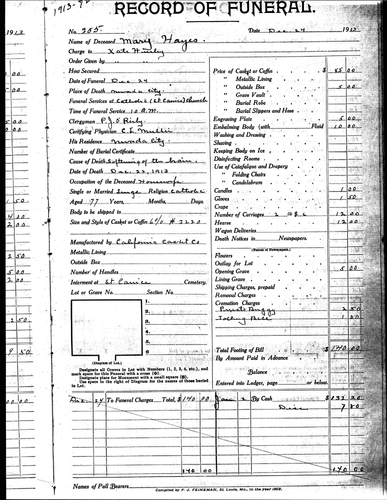 1913-92
RECORD OF FUNERAL.
1912
No. 255 Date Dec 24 1912
Name of Deceased Mary Hayes.
Charge to Kate
Order Given by
How Secured
Date of Funeral Dec 24
Place of Death Nevada City
Funeral Services at Catholic (St Canice) Church
Time of Funeral Service 10 A.M.
Clergyman P.J. O'
Certifying Physician C.L. Muller
His Residence Nevada City
Number of Burial Certificate
Cause of Death Softening of the brain
Date of Death Dec. 22, 1912
Occupation of the Deceased Housewife
Single or Married Single Religion Catholic
Aged 77 Years, Months, Days.
Body to be shipped to
Size and Style of Casket or Coffin 6/0 # 2230
Manufactured by California Casket Co
Metallic Lining
Outside Box
Number of Handles
Interment at St Canice Cemetery.
Lot or Grave No. Section No.
1.
2.
3.
4.
5.
6.
(Diagram of Lot.)
Designate all Graves in Lot with Numbers (1, 2, 3, 4, etc.), and
mark space for this Funeral with a cross (X).
Designate place for Monument with a small square (□).
Use space to the right of Diagram for the names of those buried
in Lot.
Price of Casket or Coffin $ 85 00
" Metallic Lining
" Outside Box 5 00
" Grave Vault
" Burial Robe
" Burial Slippers and Hose
Engraving Plate 5 00
Embalming Body (with Fluid 10 00
Washing and Dressing
Shaving
Keeping Body on Ice
Disinfecting Rooms
Use of Catafalque and Drapery
" Folding Chairs
" Candelabrum
Candles 1 00
Gloves 1 50
Crape
Number of Carriages 2 @ 6 12 00
Hearse 12 00
Wagon Deliveries
Death Notices in Newspapers.
(Names of Newspapers)
Flowers
Outlay for Lot
Opening Grave 5 00
Lining Grave
Shipping Charges, prepaid
Removal Charges
Cremation Charges
Private Buggy 2 50
Tolling Bell 1 00
Total Footing of Bill $ 140 00
By Amount Paid in Advance
Balance
Entered into Ledger, page or below.
Dec 24 To Funeral Charges Total, $ 140 00
Jan 2 By Cash $ 132 20
Disc 7 80
140 00 140 00
Names of Pall Bearers
Compiled by F. J. FEINEMAN, St. Louis, Mo., in the year 1908.